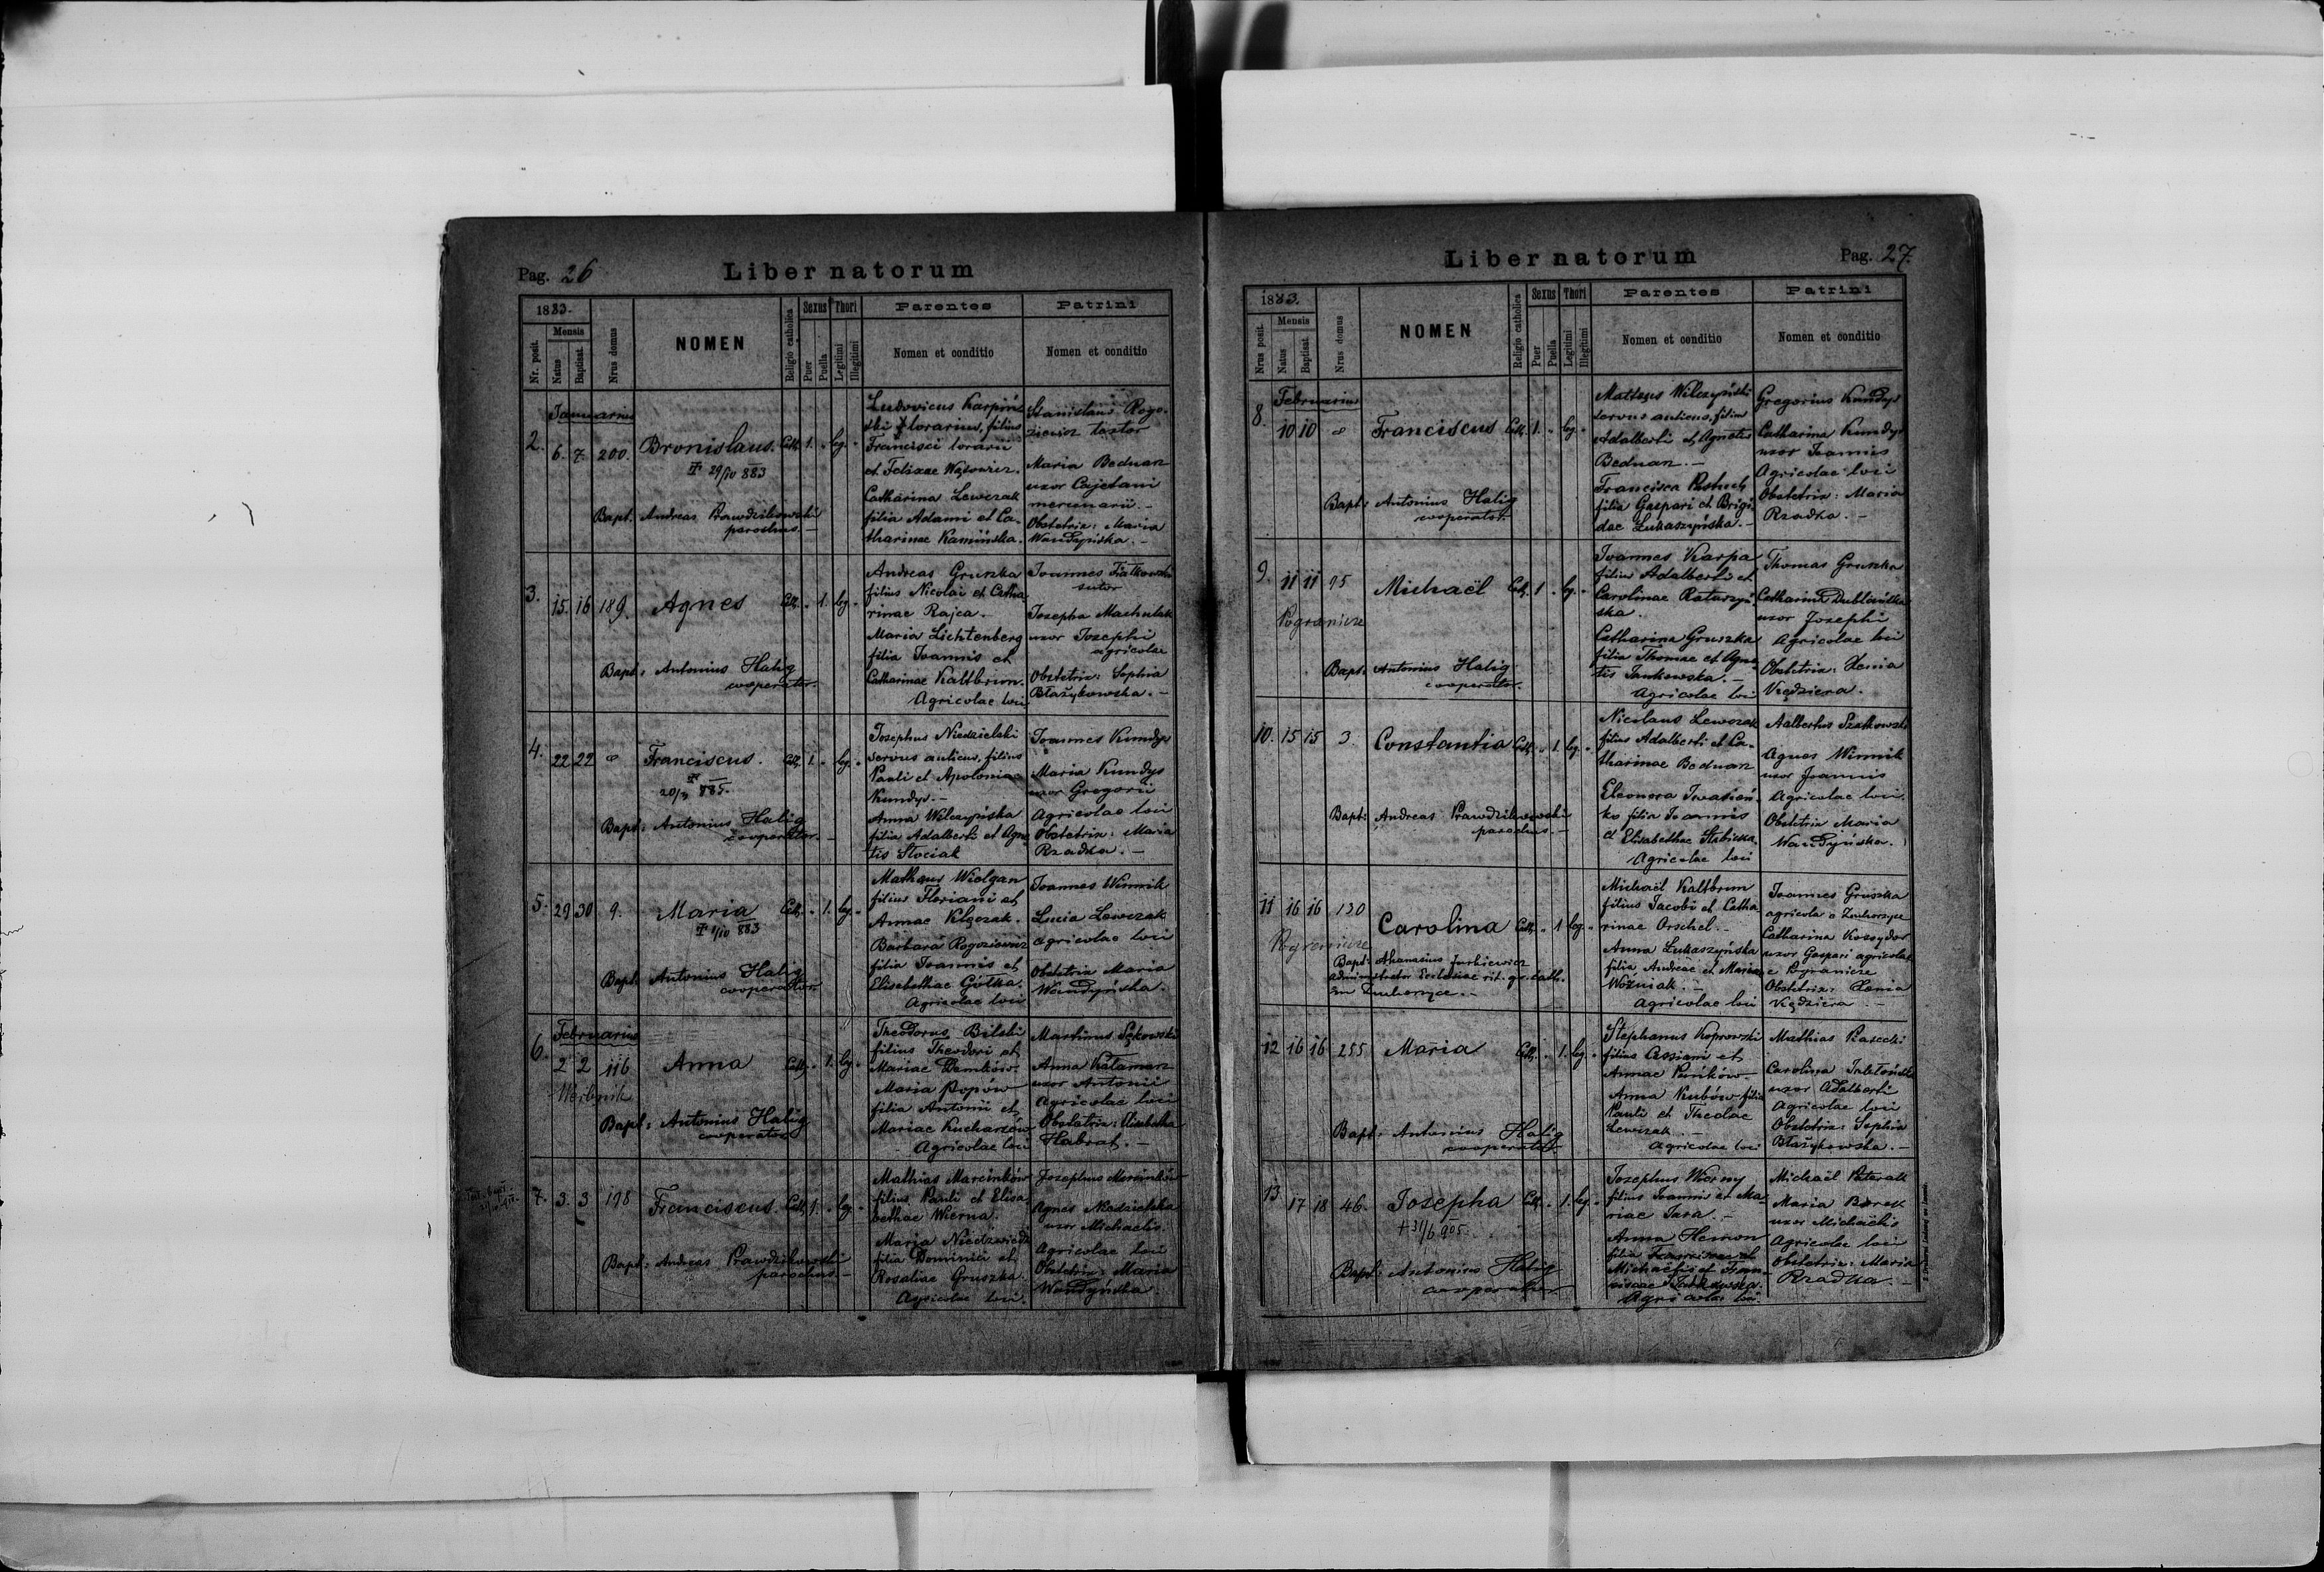 Pag. 26
Liber natorum
1883.
Nr. posit.
Mensis
Natus
Baptisat.
Nrus domus
NOMEN
Religio catholica
Sexus
Puer
Puella
Thori
Legitimi
Illegitimi
Parentes
Nomen et conditio
Patrini
Nomen et conditio
Januarius
2. 6. 7. 200. Bronislaus. Cath. 1. " leg. "
29/IV 883
Bapt. Andreas Prawdzikowski
parochus. –
Ludovicus Karpiń-
ski lorarius, filius
Francisci lorarii
et Felixae Wąsowicz.
Catharina Lewczak
filia Adami et Ca-
tharinae Kamińska.
Stanislaus Rogo-
ziewicz textor
Maria Bednarz
uxor Cajetani
mercenarii. –
Obstetrix: Maria
Wandyńska. –
3. 15. 16 189. Agnes Cath. " 1. leg. "
Bapt: Antonius Halig
cooperator.
Andreas Gruszka
filius Nicolai et Catha-
rinae Rajca.
Maria Lichtenberg
filia Joannis et
Catharinae Kaltbrun.
Agricolae loci
Joannes Fiałkowski
sutor
Josepha Machulak
uxor Josephi
agricolae
Obstetrix: Sophia
Błażykowska. –
4. 22 22 Franciscus. Cath. 1. " leg. "
885.
Bapt: Antonius Halig
cooperator. –
Josephus Niedzielski
servus aulicus, filius
Pauli et Apoloniae
Kundys. –
Anna Wilczyńska
filia Adalberti et Agne-
tis Stociak
Joannes Kundys
Maria Kundys
uxor Gregorii
Agricolae loci
Obstetrix: Maria
Rzadka. –
5. 29 30 9. Maria Cath. " 1. leg. "
883
Bapt. Antonius Halig
cooperator.
Mathaus Wielgan
filius Floriani et
Annae Klęczak.
Barbara Rogoziewicz
filia Joannis et
Elisabethae Gołka.
Agricolae loci
Joannes Winnik
Lucia Lewczak
Agricolae loci
Obstetrix Maria
Wandyńska.
Februarius
6. 2 2 116 Anna Cath. " 1. leg. "
Bapt: Antonius Halig
cooperator
Theodorus Bilski
filius Theodori et
Mariae
Maria Popów
filia Antonii et
Mariae Kucharzów
Agricolae loci
Martinus Sękowski
Anna Kałamarz
uxor Antonii
Agricolae loci
Obstetrix: Elisabetha
Habrat. –
7. 3. 3 198 Franciscus. Cath. 1. " leg. "
Bapt: Andreas Prawdzikowski
parochus –
Mathias Marcinków
filius Pauli et Elisa-
bethae Wierna.
Maria
filia Dominici et
Rosaliae Gruszka.
Agricolae loci.
Josephus Marcinków
Agnes Niedzielska
uxor Michaelis.
Agricolae loci
Obstetrix: Maria
Wandyńska
Liber natorum
Pag. 27.
1883.
Nrus posit.
Mensis
Natus
Baptisat.
Nrus domus
NOMEN
Religio catholica
Sexus
Puer
Puella
Thori
Legitimi
Illegitimi
Parentes
Nomen et conditio
Patrini
Nomen et conditio
Februarius
8. 10 10 Franciscus Cath. 1. " leg. "
Bapt: Antonius Halig
cooperator.
Matteus Wilczyński
servus aulicus, filius
Adalberti et Agnetis
Bednarz. –
Francisca
filia Gaspari et Brigi-
dae Łukaszyńska. –
Gregorius Kundys
Catharina Kundys
uxor Joannis
Agricolae loci
Obstetrix: Maria
Rzadka. –
9. 11 11 95 Michaël Cath. 1 " leg. "
Pogranicze
Bapt: Antonius Halig
cooperator.
Joannes Karpa
filius Adalberti et
Carolinae Raturzyń-
ska.
Catharina Gruszka
filia Thomae et Agne-
tis Jankowska. –
Agricolae loci
Thomas Gruszka
Catharina
uxor Josephi
Agricolae loci
Obstetrix: Xenia
Kędziera.
10. 15 15 3. Constantia Cath. " 1. leg. "
Bapt: Andreas Prawdzikowski
parochus. –
Nicolaus Lewczak
filius Adalberti et Ca-
tharinae Bednarz
Eleonora Iwasień-
ko filia Joannis
et Elisabethae
Agricolae loci
Adalbertus Szatkowski
Agnes Winnik
uxor Joannis
Agricolae loci.
Obstetrix Maria
Wandyńska.
11 16 16 130 Carolina Cath. " 1 leg. "
Pogranicze
Bapt: Athanasius Jurkiewicz
administrator Ecclesiae rit. gr. cath.
in Zuchorzyce. –
Michaël Kaltbrun
filius Jacobi et Catha-
rinae Orschel. –
Anna Łukaszyńska
filia Andreae et Mariae
Woźniak. –
Agricolae loci
Joannes Gruszka
agricola e Zuchorzyce
Catharina Kossydor
uxor Gaspari agricolae
e Pogranicze
Obstetrix: Xenia
Kędziera –
12 16 16 255 Maria Cath. " 1. leg. "
Bapt: Antonius Halig
cooperator.
Stephanus Koprowski
filius Cassiani et
Annae
Anna Kubów filia
Pauli et Theclae
Lewczak –
Agricolae loci
Mathias Rasecki
Carolina
uxor Adalberti
Agricolae loci
Obstetrix: Sophia
Błażykowska. –
13 17 18 46. Josepha Cath. " 1. leg. "
+31/6 905.
Bapt: Antonius Halig
cooperator
Josephus Wierny
filius Joannis et Ma-
riae Jasa. –
Anna Hemon
filia
Michaelis et Fran-
ciscae Jankowska.
Agricolae loci.
Michaël Paterak
Maria Borek
uxor Michaëlis
Agricolae loci
Obstetrix: Maria
Rzadka. –